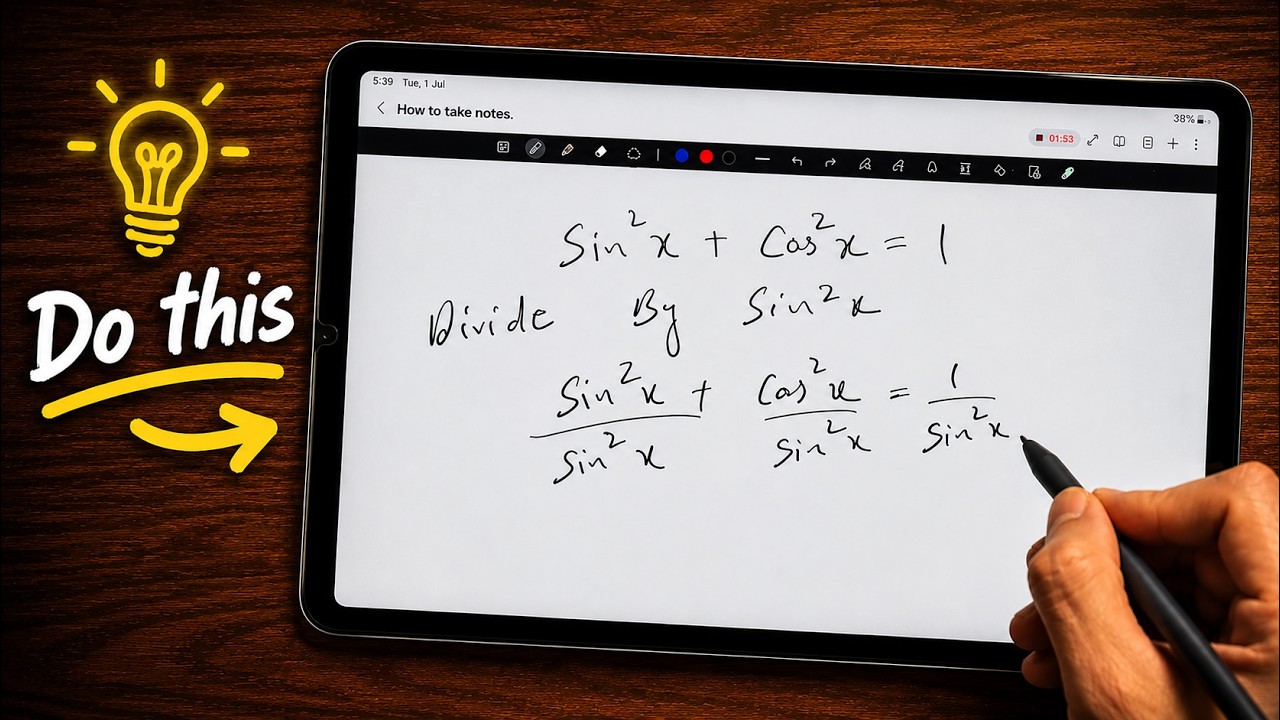 Do this
5:39 Tue, 1 Jul
38%
How to take notes.
01:53
Sin²x + Cos²x = 1
Divide By Sin²x
Sin²x/Sin²x + Cos²x/Sin²x = 1/Sin²x